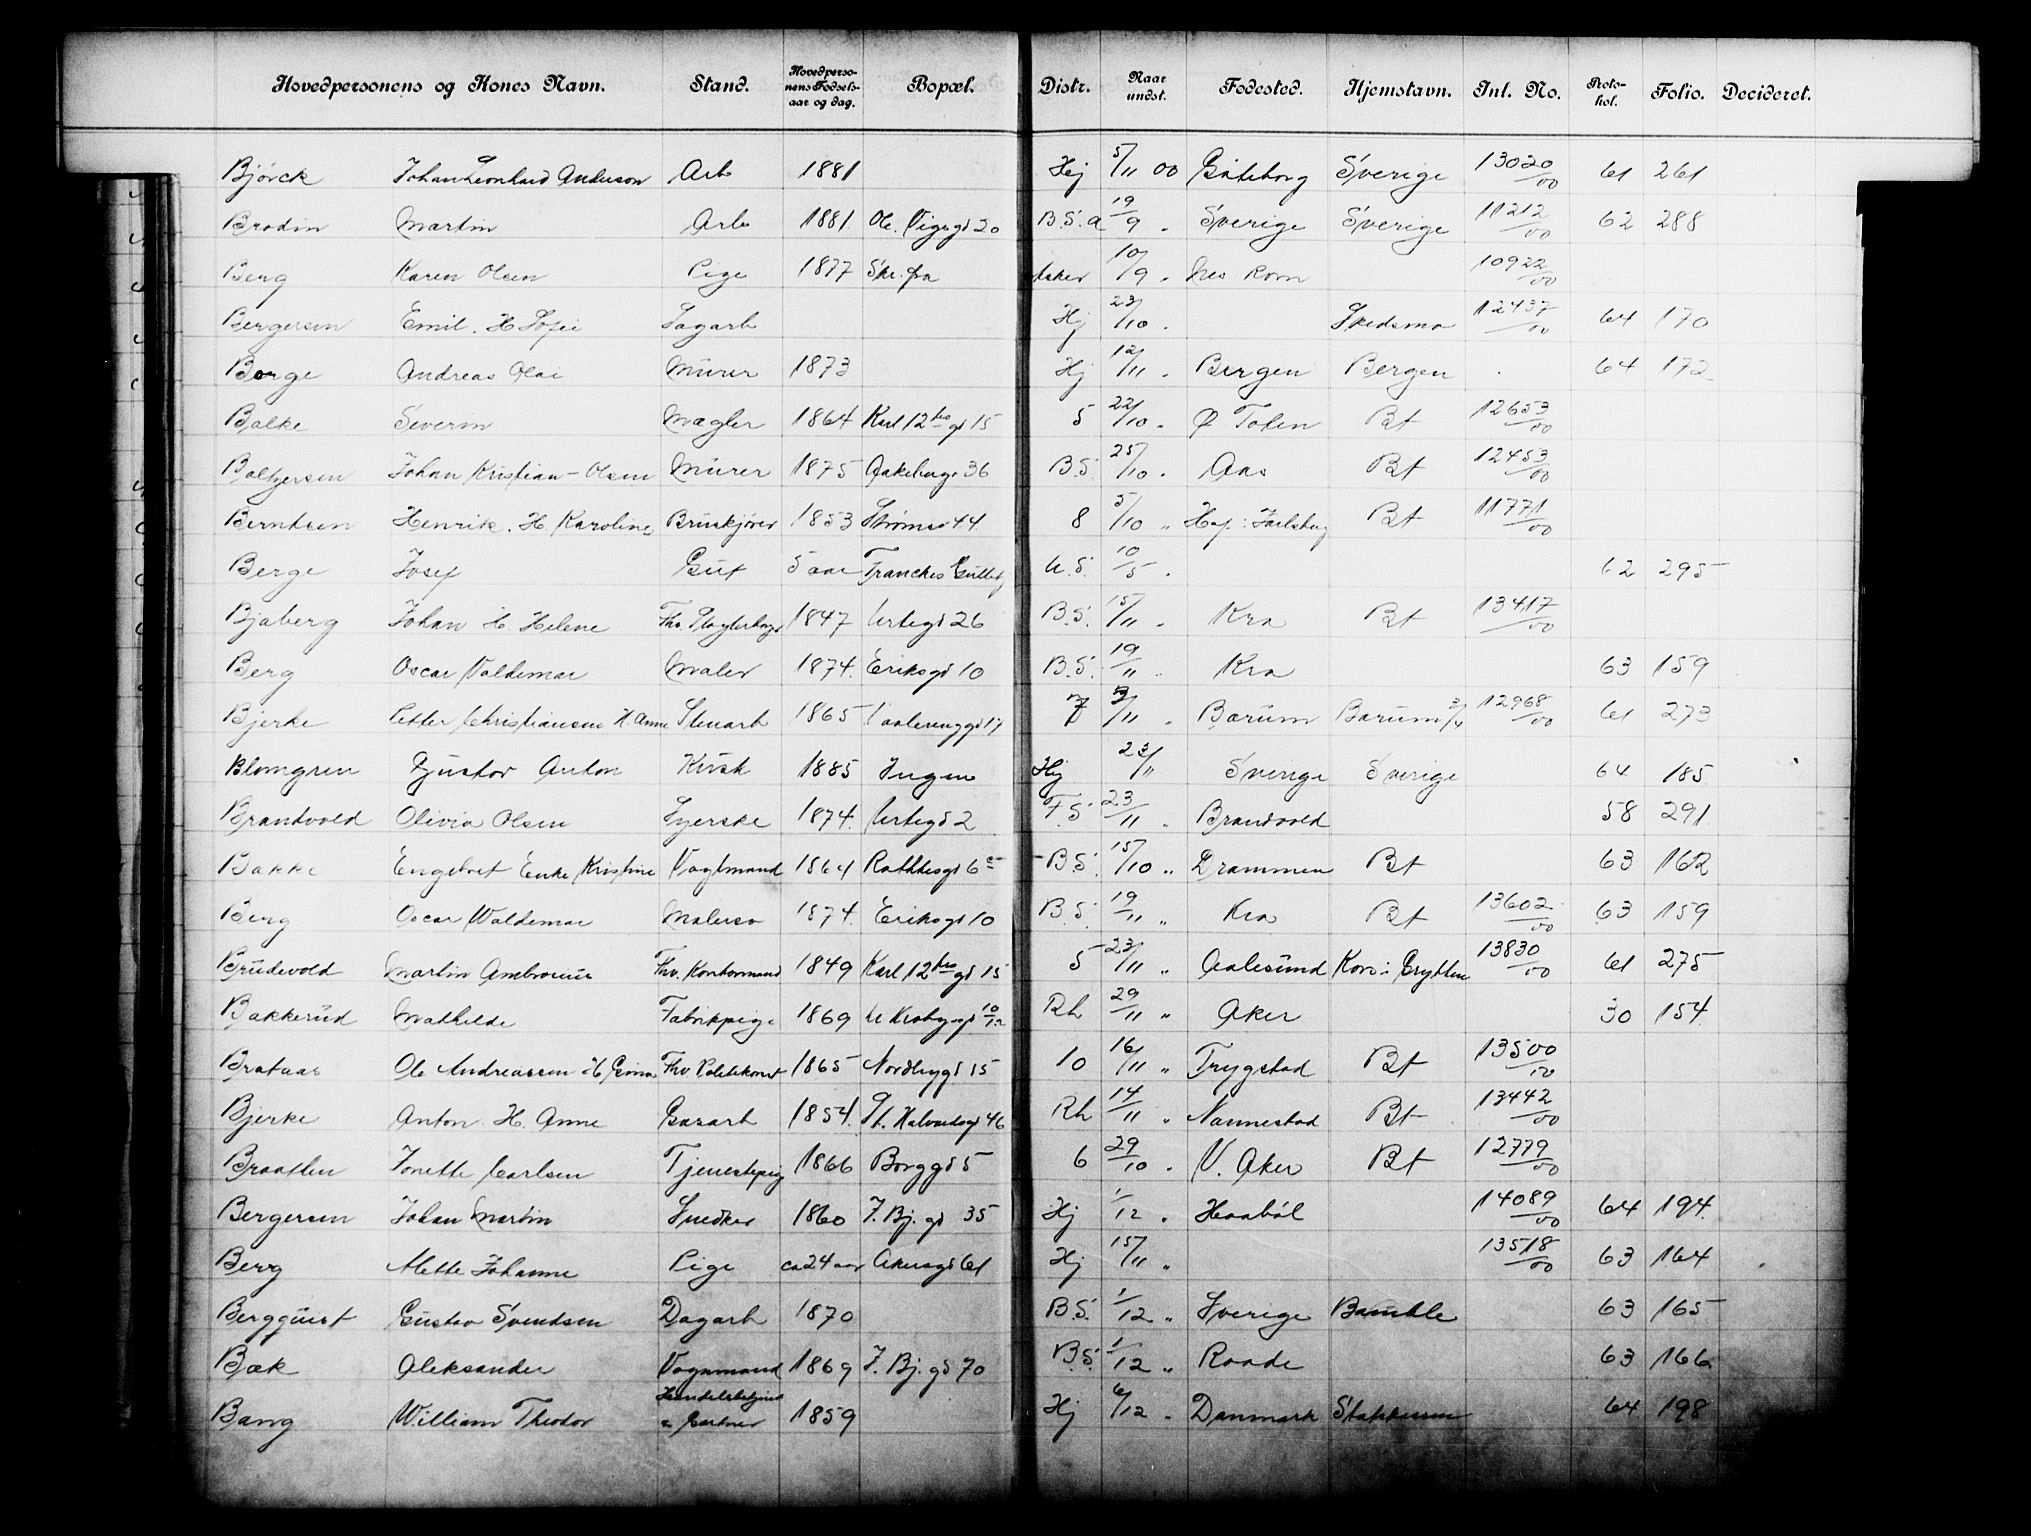 Hovedpersonens og Kones Navn. Stand. Hovedpersonens Fødselsaar og dag. Bopæl. Distr. Naar undst. Fødested. Hjemstavn. Inl. No. Protokol. Folio. Decideret.
Bjørck Johan Leonhard Anderson Arb 1881 Hj 5/11 00 Göteborg Sverige 13020/00 61 261
Brodin Martin Arb 1881 Ole Vigsgd 20 B.S. a 19/9 " Sverige Sverige 11212/00 62 288
Berg Karen Olsen Pige 1877 Skr. fra Asker 10/9 " Nes Rom 10922/00
Bergersen Emil. H Sofie Sagarb Hj 23/10 " Skedsmo 12437/00 64 170
Borge Andreas Olai Murer 1873 Hj 12/11 " Bergen Bergen 64 172
Balke Severin Mægler 1864 Karl 12tes gd 15 5 22/10 " Ø Toten Bt 12653/00
Baltzersen Johan Kristian - Olsen Murer 1875 Aakebergv 36 B.S. 25/10 " Aas Bt 12453/00
Berntsen Henrik. H. Karoline Bruskjører 1853 Strømsv 44. 8 5/10 " Hof : Jarlsberg Bt 11771/00
Berge Josef Gut 5 aar U.S. 10/5 " 62 295
Bjaberg Johan H Helene Fhv. 1847 Urtegd 26 B.S. 15/11 " Kra Bt 13417/00
Berg Oscar Valdemar Maler 1874. Eriksgd 10 B.S. 19/11 " Kra 63 159
Bjerke Petter Christiansen H. Anne Stenarb 1865 Vaalerenggd 17 7 2/11 " Bærum Bærum 3/4 12968/00 61 273
Blomgren Gustav Anton Kusk 1885 Ingen Hj 23/11 Sverige Sverige 64 185.
Brandvold Olivia Olsen Syerske 1874. Urtegd 2 F.S. 23/11 " Brandvold 58 291.
Bakke Engebret Enke Kristine Vogtmand 1864 Rathkesgd 6 B.S. 15/10 " Drammen Bt 63 162
Berg Oscar Waldemar Malersv 1874. Eriksgd 10 B.S. 19/11 " Kra Bt 13602/00 63 159
Brudevold Martin Ambrosius Fhv. Kontormand 1849 Karl 12tes gd 15 5 23/11 " Aalesund Kors : Grytten 13830/00 61 275
Bakkerud Mathilde Fabrikpige 1869 Rh 29/11 " Aker 30 154
Brataas Ole Andreassen H Fhv. Politikonst 1865 Nordbygd 15 10 16/11 " Trygstad Bt 13500/00
Bjerke Anton. H. Anne Gasarb 1854. St. Halvardsgd 46 Rh 14/11 " Nannestad Bt 13442/00
Braathen Jonette Carlsen Tjenestepig 1866 Borggd 5 6 29/10 " V. Aker Bt 12779/00
Bergersen Johan Martin Snedker 1860 T. Bj. gd 35 Hj 1/12 " Haabøl 14089/00 64 194.
Berg Mette Johanne Pige ca 24 aar Akersgd 61 Hj 15/11 " 13518/00 63 164
Bergquist Gustav Svendsen Dagarb 1870 B.S. 1/12 " Sverige Bamble 63 165
Bæk Aleksander Vognmand 1869 T. Bj. gd 70 B.S. 1/12 " Raade 63 166
Bang William Theodor Handelsbetjent & Gartner 1859 Hj 6/12 " Danmark 64 198